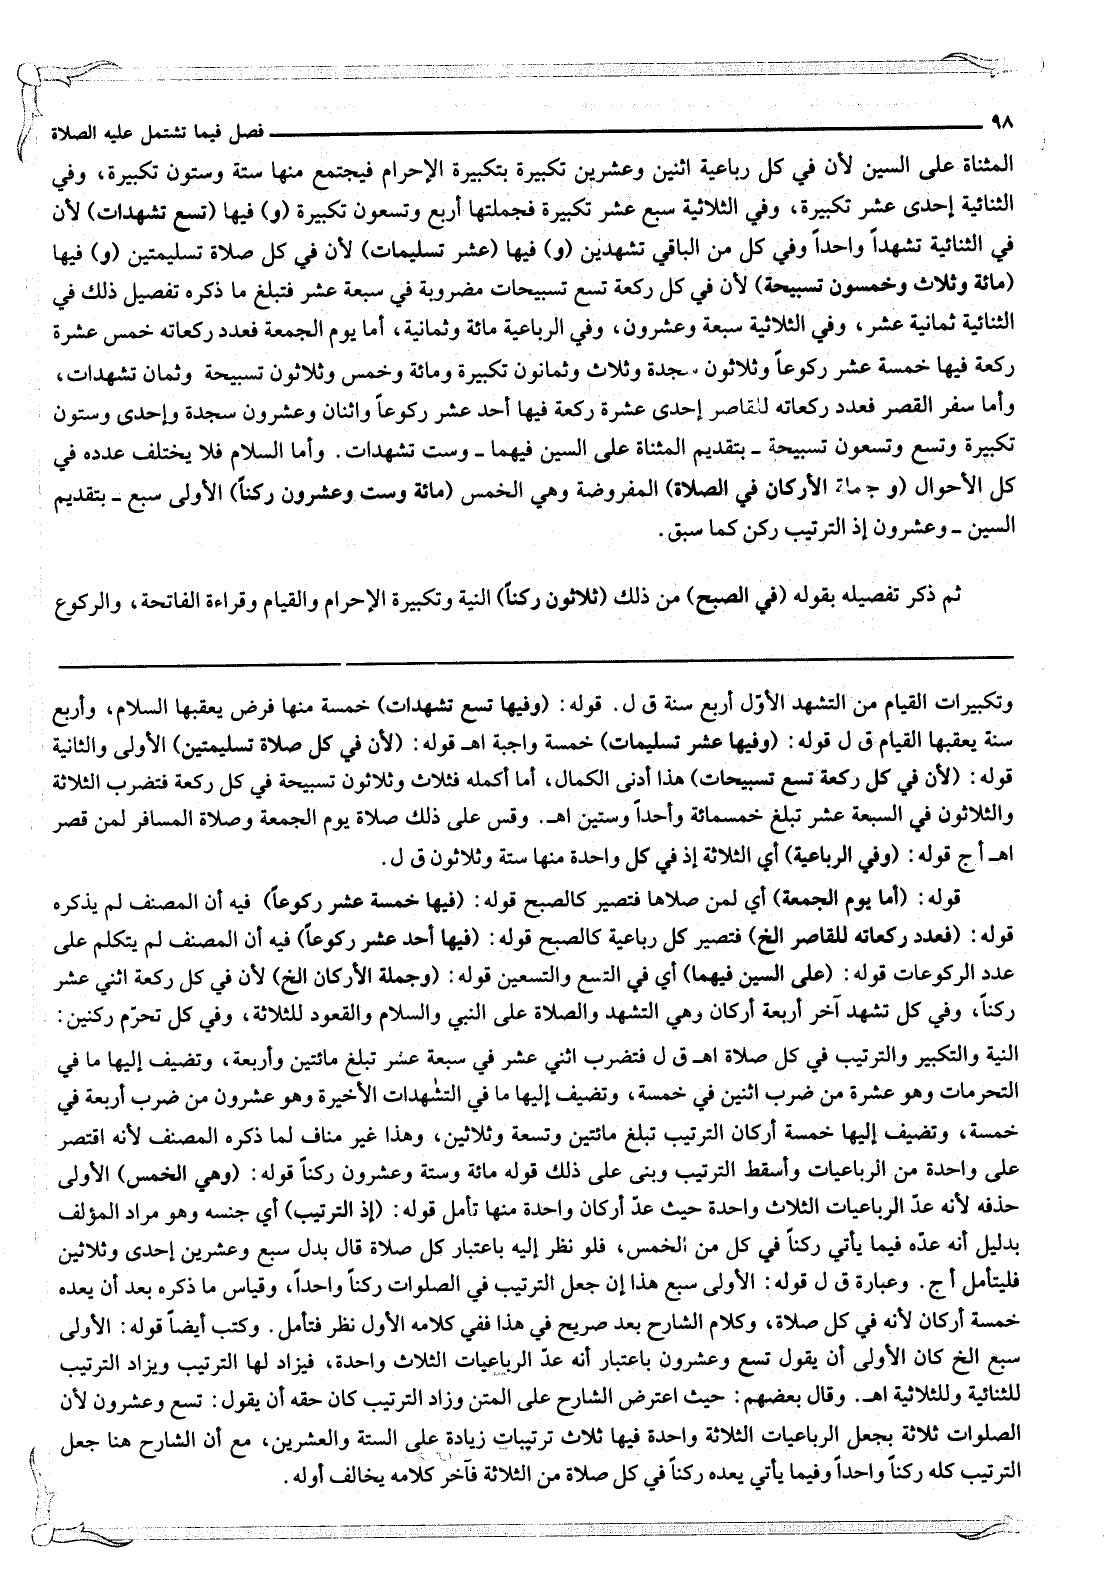 ٩٨ فصل فيما تشتمل عليه الصلاة
المثناة على السين لأن في كل رباعية اثنين وعشرين تكبيرة بتكبيرة الإحرام فيجتمع منها ستة وستون تكبيرة، وفي
الثنائية إحدى عشر تكبيرة، وفي الثلاثية سبع عشر تكبيرة فجملتها أربع وتسعون تكبيرة (و) فيها (تسع تشهدات) لأن
في الثنائية تشهداً واحداً وفي كل من الباقي تشهدين (و) فيها (عشر تسليمات) لأن في كل صلاة تسليمتين (و) فيها
(مائة وثلاث وخمسون تسبيحة) لأن في كل ركعة تسع تسبيحات مضروبة في سبعة عشر فتبلغ ما ذكره تفصيل ذلك في
الثنائية ثمانية عشر، وفي الثلاثية سبعة وعشرون، وفي الرباعية مائة وثمانية، أما يوم الجمعة فعدد ركعاته خمس عشرة
ركعة فيها خمسة عشر ركوعاً وثلاثون سجدة وثلاث وثمانون تكبيرة ومائة وخمس وثلاثون تسبيحة وثمان تشهدات،
وأما سفر القصر فعدد ركعاته للقاصر إحدى عشرة ركعة فيها أحد عشر ركوعاً واثنان وعشرون سجدة وإحدى وستون
تكبيرة وتسع وتسعون تسبيحة ـ بتقديم المثناة على السين فيهما ـ وست تشهدات. وأما السلام فلا يختلف عدده في
كل الأحوال (وجملة الأركان في الصلاة) المفروضة وهي الخمس (مائة وست وعشرون ركناً) الأولى سبع ـ بتقديم
السين ـ وعشرون إذ الترتيب ركن كما سبق.
ثم ذكر تفصيله بقوله (في الصبح) من ذلك (ثلاثون ركناً) النية وتكبيرة الإحرام والقيام وقراءة الفاتحة، والركوع
وتكبيرات القيام من التشهد الأوّل أربع سنة ق ل. قوله: (وفيها تسع تشهدات) خمسة منها فرض يعقبها السلام، وأربع
سنة يعقبها القيام ق ل قوله: (وفيها عشر تسليمات) خمسة واجبة اهـ قوله: (لأن في كل صلاة تسليمتين) الأولى والثانية
قوله: (لأن في كل ركعة تسع تسبيحات) هذا أدنى الكمال، أما أكمله فثلاث وثلاثون تسبيحة في كل ركعة فتضرب الثلاثة
والثلاثون في السبعة عشر تبلغ خمسمائة وأحداً وستين اهـ. وقس على ذلك صلاة يوم الجمعة وصلاة المسافر لمن قصر
اهـ أ ج قوله: (وفي الرباعية) أي الثلاثة إذ في كل واحدة منها ستة وثلاثون ق ل.
قوله: (أما يوم الجمعة) أي لمن صلاها فتصير كالصبح قوله: (فيها خمسة عشر ركوعاً) فيه أن المصنف لم يذكره
قوله: (فعدد ركعاته للقاصر الخ) فتصير كل رباعية كالصبح قوله: (فيها أحد عشر ركوعاً) فيه أن المصنف لم يتكلم على
عدد الركوعات قوله: (على السين فيهما) أي في التسع والتسعين قوله: (وجملة الأركان الخ) لأن في كل ركعة اثني عشر
ركناً، وفي كل تشهد آخر أربعة أركان وهي التشهد والصلاة على النبي والسلام والقعود للثلاثة، وفي كل تحرّم ركنين:
النية والتكبير والترتيب في كل صلاة اهـ ق ل فتضرب اثني عشر في سبعة عشر تبلغ مائتين وأربعة، وتضيف إليها ما في
التحرمات وهو عشرة من ضرب اثنين في خمسة، وتضيف إليها ما في التشهدات الأخيرة وهو عشرون من ضرب أربعة في
خمسة، وتضيف إليها خمسة أركان الترتيب تبلغ مائتين وتسعة وثلاثين، وهذا غير مناف لما ذكره المصنف لأنه اقتصر
على واحدة من الرباعيات وأسقط الترتيب وبنى على ذلك قوله مائة وستة وعشرون ركناً قوله: (وهي الخمس) الأولى
حذفه لأنه عدّ الرباعيات الثلاث واحدة حيث عدّ أركان واحدة منها تأمل قوله: (إذ الترتيب) أي جنسه وهو مراد المؤلف
بدليل أنه عدّه فيما يأتي ركناً في كل من الخمس، فلو نظر إليه باعتبار كل صلاة قال بدل سبع وعشرين إحدى وثلاثين
فليتأمل أ ج. وعبارة ق ل قوله: الأولى سبع هذا إن جعل الترتيب في الصلوات ركناً واحداً، وقياس ما ذكره بعد أن يعده
خمسة أركان لأنه في كل صلاة، وكلام الشارح بعد صريح في هذا ففي كلامه الأول نظر فتأمل. وكتب أيضاً قوله: الأولى
سبع الخ كان الأولى أن يقول تسع وعشرون باعتبار أنه عدّ الرباعيات الثلاث واحدة، فيزاد لها الترتيب ويزاد الترتيب
للثنائية وللثلاثية اهـ. وقال بعضهم: حيث اعترض الشارح على المتن وزاد الترتيب كان حقه أن يقول: تسع وعشرون لأن
الصلوات ثلاثة بجعل الرباعيات الثلاثة واحدة فيها ثلاث ترتيبات زيادة على الستة والعشرين، مع أن الشارح هنا جعل
الترتيب كله ركناً واحداً وفيما يأتي يعده ركناً في كل صلاة من الثلاثة فآخر كلامه يخالف أوله.